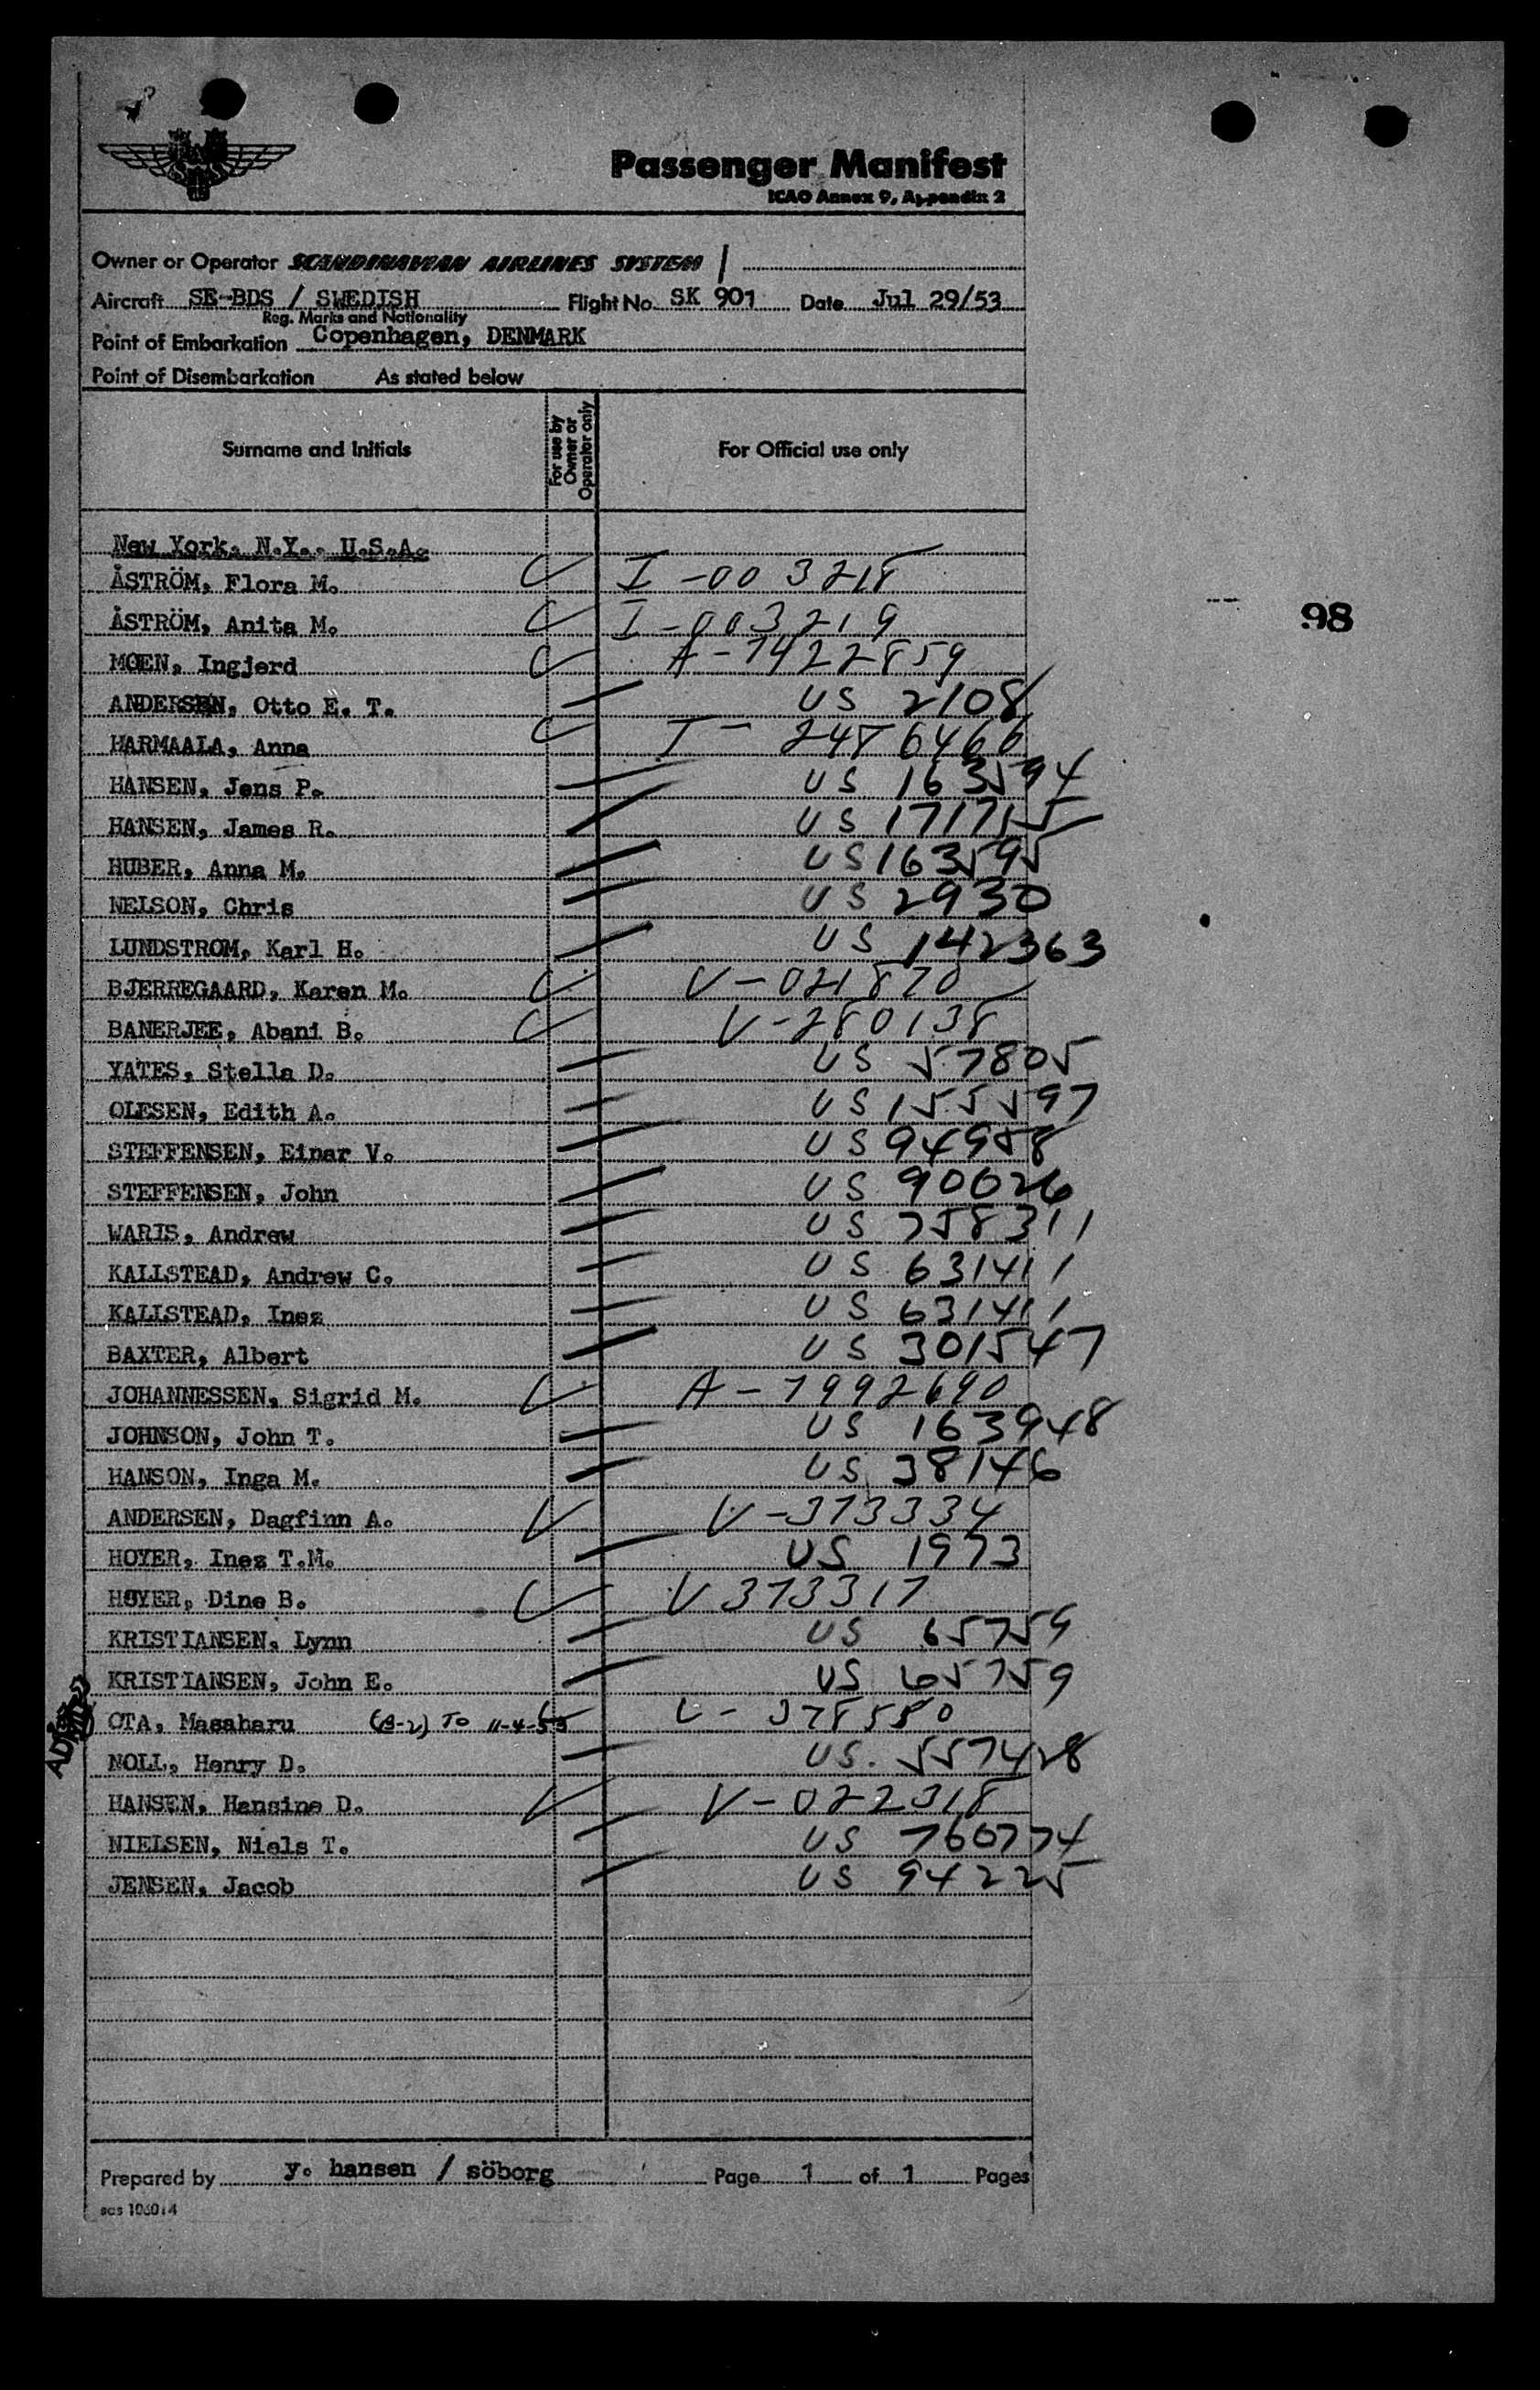 SAS
Passenger Manifest
ICAO Annex 9, Appendix 2
Owner or Operator SCANDINAVIAN AIRLINES SYSTEM /
Aircraft SE-BDS / SWEDISH Flight No. SK 901 Date Jul 29/53
Reg. Marks and Nationality
Point of Embarkation Copenhagen, DENMARK
Point of Disembarkation As stated below
Surname and Initials For use by Owner or Operator only For Official use only
New York, N.Y., U.S.A.
ÅSTRÖM, Flora M. I-003218
ÅSTRÖM, Anita M. I-003219
98
MOEN, Ingjerd A-7422859
ANDERSEN, Otto E. T. US 2108
HARMAALA, Anna I-2486466
HANSEN, Jens P. US 163594
HANSEN, James R. US 171715
HUBER, Anna M. US 163595
NELSON, Chris US 2930
LUNDSTROM, Karl H. US 142363
BJERREGAARD, Karen M. V-021870
BANERJEE, Abani B. V-280138
YATES, Stella D. US 57805
OLESEN, Edith A. US 155597
STEFFENSEN, Einar V. US 94958
STEFFENSEN, John US 90026
WARIS, Andrew US 758311
KALLSTEAD, Andrew C. US 631411
KALLSTEAD, Inez US 631411
BAXTER, Albert US 301547
JOHANNESSEN, Sigrid M. A-7992690
JOHNSON, John T. US 163948
HANSON, Inga M. US 38146
ANDERSEN, Dagfinn A. V-373334
HOYER, Inez T.M. US 1973
HOYER, Dine B. V 373317
KRISTIANSEN, Lynn US 65759
KRISTIANSEN, John E. US 65759
OTA, Masaharu (B-2) To 11-4-53 V-378580
NOLL, Henry D. US 557428
HANSEN, Hansine D. V-022318
NIELSEN, Niels T. US 760774
JENSEN, Jacob US 94225
Prepared by y. hansen / söborg Page 1 of 1 Pages